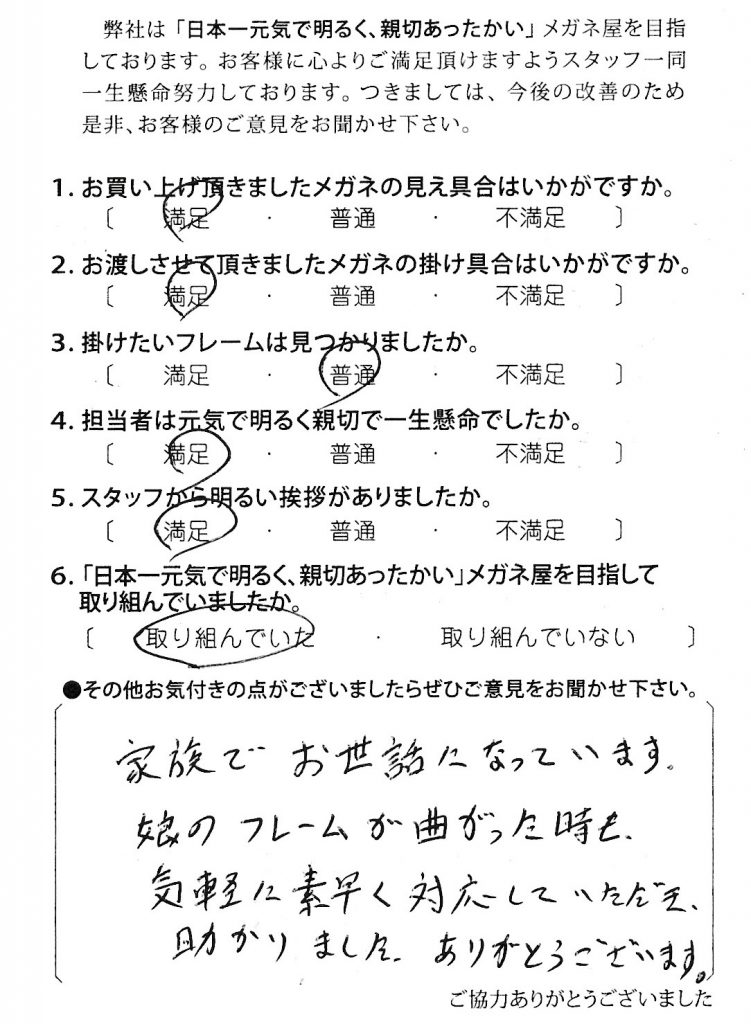 弊社は「日本一元気で明るく、親切あったかい」メガネ屋を目指
しております。お客様に心よりご満足頂けますようスタッフ一同
一生懸命努力しております。つきましては、今後の改善のため
是非、お客様のご意見をお聞かせ下さい。
1. お買い上げ頂きましたメガネの見え具合はいかがですか。
〔 満足 ・ 普通 ・ 不満足 〕
2. お渡しさせて頂きましたメガネの掛け具合はいかがですか。
〔 満足 ・ 普通 ・ 不満足 〕
3. 掛けたいフレームは見つかりましたか。
〔 満足 ・ 普通 ・ 不満足 〕
4. 担当者は元気で明るく親切で一生懸命でしたか。
〔 満足 ・ 普通 ・ 不満足 〕
5. スタッフから明るい挨拶がありましたか。
〔 満足 ・ 普通 ・ 不満足 〕
6. 「日本一元気で明るく、親切あったかい」メガネ屋を目指して
取り組んでいましたか。
〔 取り組んでいた ・ 取り組んでいない 〕
●その他お気付きの点がございましたらぜひご意見をお聞かせ下さい。
家族で お世話になっています。
娘のフレームが曲がった時も、
気軽に素早く対応していただき、
助かりました。ありがとうございます。
ご協力ありがとうございました